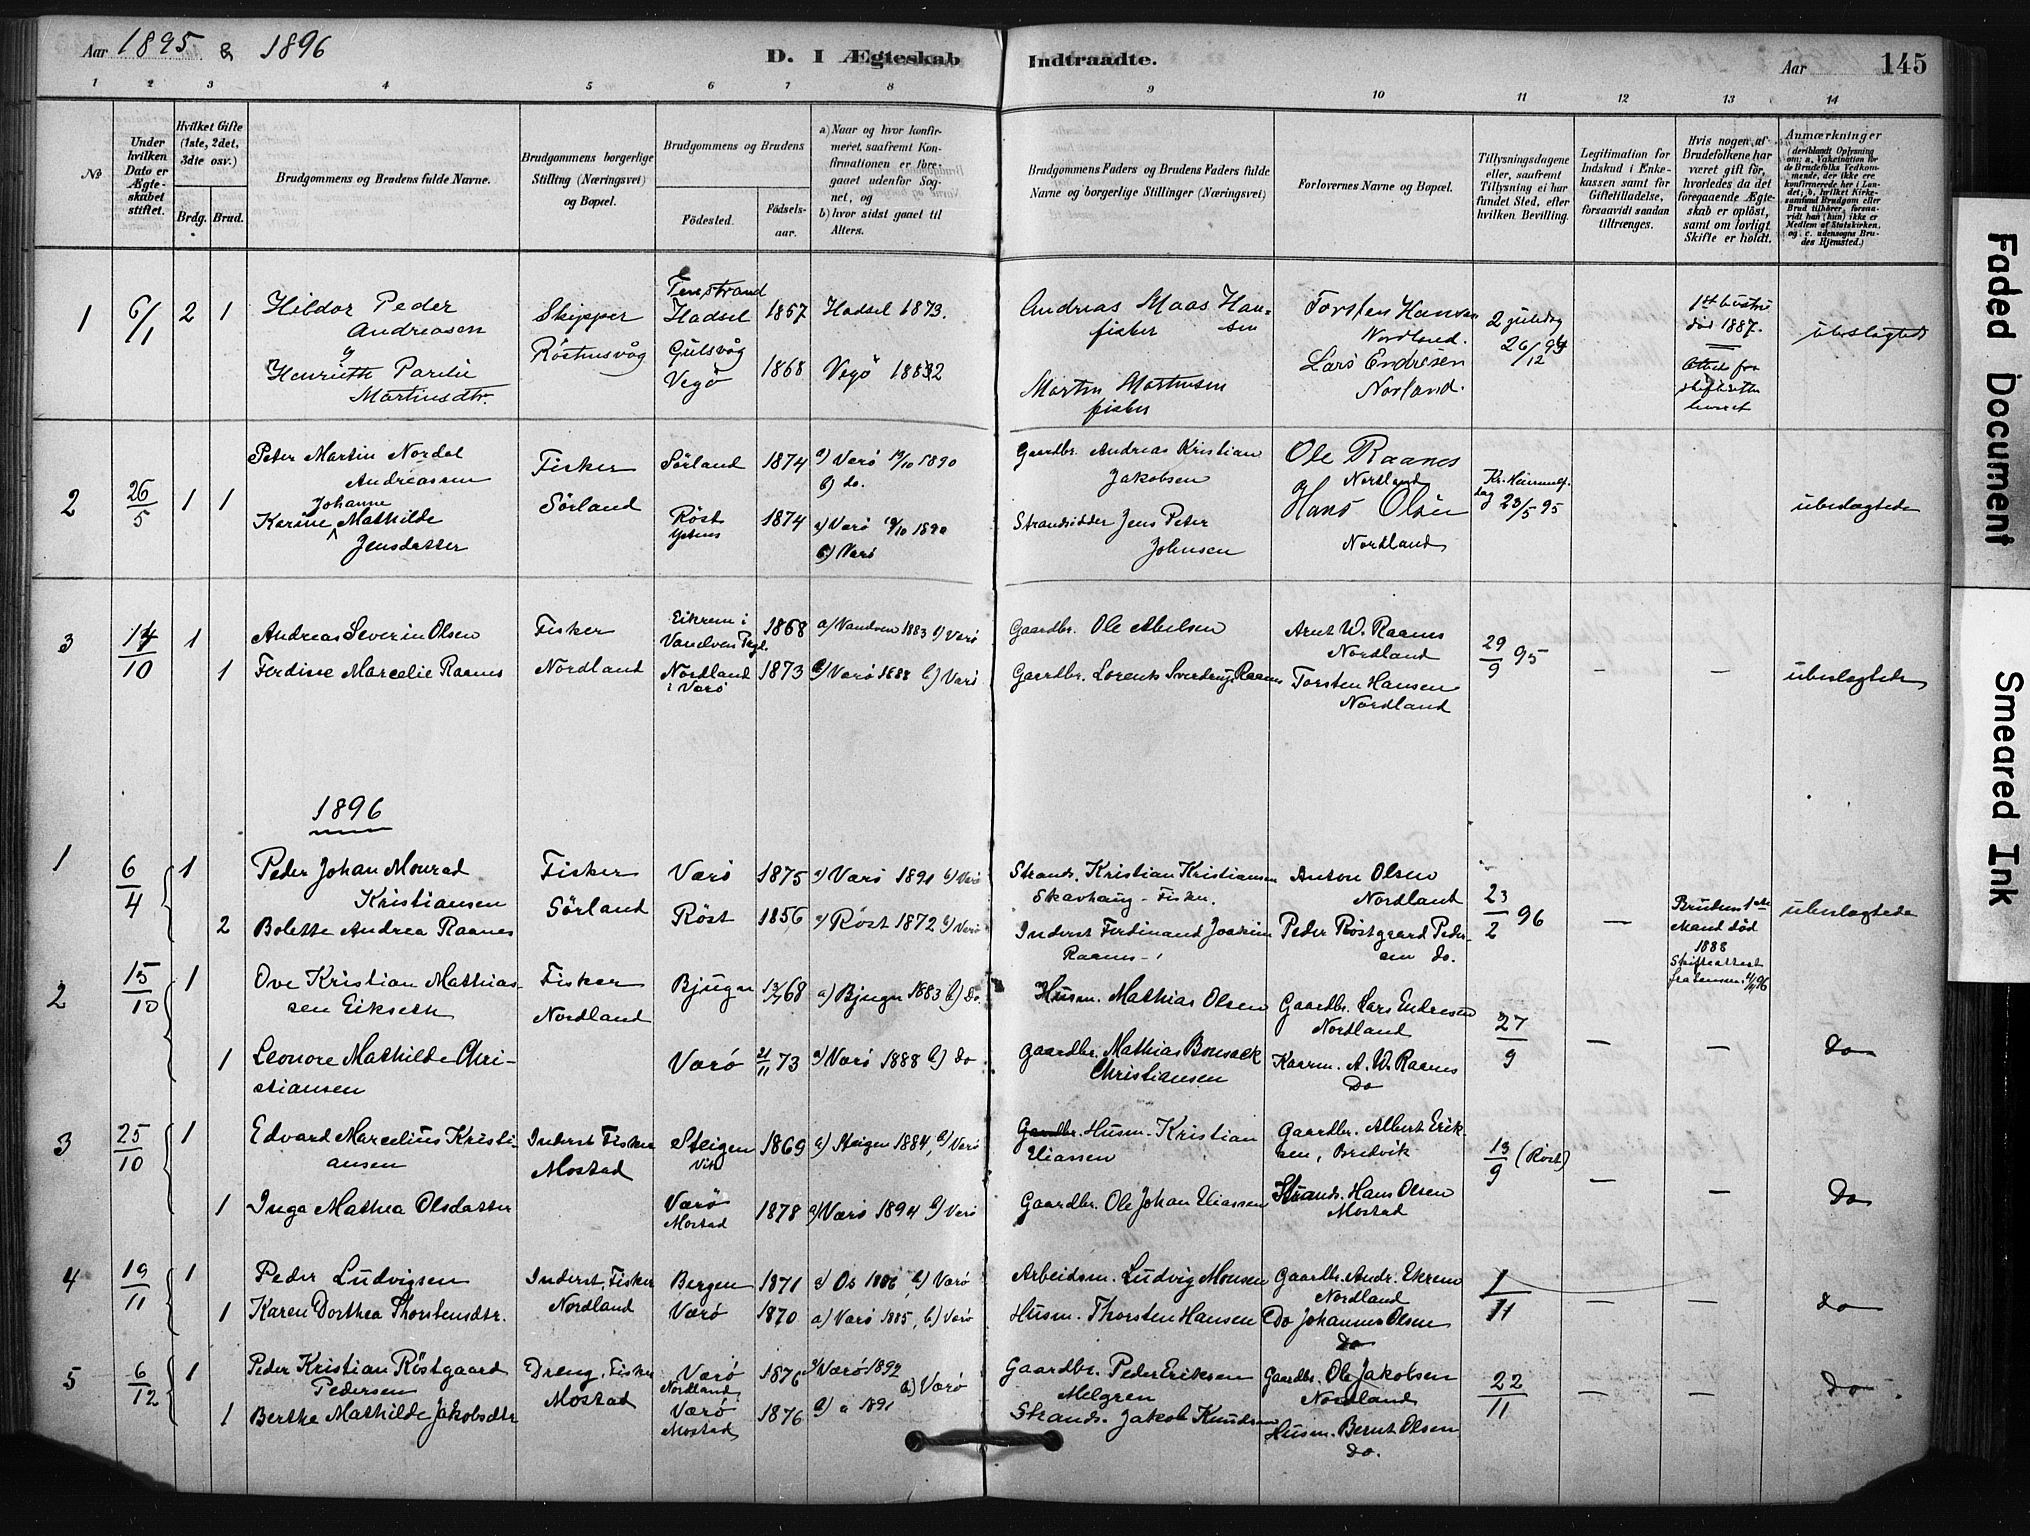 Aar 1895 & 1896
D. I Ægteskab Indtraadte.
Aar 145
1 2 3 4 5 6 7 8 9 10 11 12 13 14
No
Under hvilken Dato er Ægteskabet stiftet.
Hvilket Gifte (1ste, 2det, 3die osv.)
Brdg. Brud.
Brudgommens og Brudens fulde Navne.
Brudgommens borgerlige Stilling (Næringsvei) og Bopæl.
Brudgommens og Brudens
Fødested. Fødselsaar.
a) Naar og hvor konfirmeret, saafremt Konfirmationen er foregaaet udenfor Sognet, og
b) hvor sidst gaaet til Alters.
Brudgommens Faders og Brudens Faders fulde Navne og borgerlige Stillinger (Næringsvei)
Forlovernes Navne og Bopæl.
Tillysningsdagene eller, saafremt Tillysning ei har fundet Sted, efter hvilken Bevilling.
Legitimation for Indskud i Enkekassen samt for Giftetilladelse, forsaavidt saadan tiltrænges.
Hvis nogen af Brudefolkene har været gift før, hvorledes da det foregaaende Ægteskab er opløst, samt om lovligt Skifte er holdt.
Anmærkninger
(deriblandt Oplysning om: a. Vakcination for de Brudefolks Vedkommende, der ikke ere konfirmerede her i Landet; b. hvilket Kirkesamfund Brudgom eller Brud tilhører, forsaavidt han (hun) ikke er Medlem af Statskirken, og c. udensogns Brudes Hjemsted.)
1 6/1 2 1 Hildor Peder Andreasen
Skipper Røstnesvåg
Hadsel 1857 Hadsel 1873.
Andreas Maas Hansen fisker
Torsten Hansen Nordland.
2 juledag 26/12 94
1st hustru død 1887.
ubeslægtede
Martinsdtr.
Vegø 1868 Vegø 1882
Martin Martinsen fisker
Lars Endresen Norland.
2 26/5 1 1 Peter Martin Nordal Andreassen
Fisker Sörland
Sörland 1874 a) Værö 19/10 1890 b) do.
Gaardbr. Andreas Kristian Jakobsen
Ole Raanes Nordland
23/5 95
ubeslægtede
Johanne
Karine Mathilde Jensdatter
Röst 1874 a) Værö 19/10 1890 b) Værö
Strandsidder Jens Peter Johnsen
Hans Olsen Nordland
3 14/10 1 Andreas Severin Olsen
Fisker
Eikrem i Vanelven Pgd. 1868 a) Vanelven 1883 b) Værö
Gaardbr. Ole Abelsen
Arnt W. Raanes Nordland
29/9 95 – –
ubeslægtede
1 Ferdine Marcelie Raanes
Nordland
Nordland i Værö 1873 a) Værö 1888 b) Værö
Gaardbr. Lorents Sverdrup Raanes
Torsten Hansen Nordland
1896
1 6/4 1 Peder Johan Monrad Kristiansen
Fisker Sörland
Værö 1875 a) Værö 1891 b) Værö
Strands. Kristian Kristiansen Skavhaug - Fisker.
Anton Olsen Nordland
23/2 96 –
Brudens 1ste Mand død 1888
ubeslægtede
2 Bolette Andrea Raanes
Röst 1856 a) Röst 1872 b) Værö
Inderst Ferdinand Joakim Raanes
Peder Röstgaard Pedersen do.
2 15/10 1 Ove Kristian Mathiassen Eikseth
Fisker Nordland
Bjugn 13/7 68 a) Bjugn 1883 b) Do.
Husm. Mathias Olsen
Gaardbr. Lars Endresen Nordland
27/9 – –
Do
1 Leonore Mathilde Christiansen
Værö 21/11 73 a) Værö 1888 b) Do
Gaardbr. Mathias Bonsack Christiansen
A. W. Raanes Do
3 25/10 1 Edvard Marcelius Kristiansen
Inderst Fisker Mostad
Steigen 1869 a) Steigen 1884, b) Værö
Gaardbr. Husm. Kristian Eliassen
Gaardbr. Albert Eriksen, Bredvik
13/9 (Röst) – –
Do
1 Inga Mathea Olsdatter
Værö Mostad 1878 a) Værö 1894 b) Værö
Gaardbr. Ole Johan Eliassen
Strands. Hans Olsen Mostad
4 19/11 1 Peder Ludvigsen
Inderst Fisker Nordland
Bergen 1871 a) Os 1886, b) Værö
Arbeidsm. Ludvig Monsen
Gaardbr. Andr. Ekrem Nordland
1/11 – –
Do
1 Karen Dorthea Thorstensdtr.
Værö 1870 a) Værö 1885, b) Værö
Husm. Thorsten Hansen
Do Johannes Olsen Do
5 6/12 1 Peder Kristian Röstgaard Pedersen
Dreng, Fisker Mostad
Værö Nordland 1876 a) Værö 1892
b) Værö
Gaardbr. Peder Eriksen Melgren
Gaardbr. Ole Jakobsen Nordland
22/11 – –
Do
1 Berthe Mathilde Jakobsdtr
Værö Mostad 1876 1891
Strands. Jakob Knudsen
Husm. Bernt Olsen do.
Faded Document
Smeared Ink